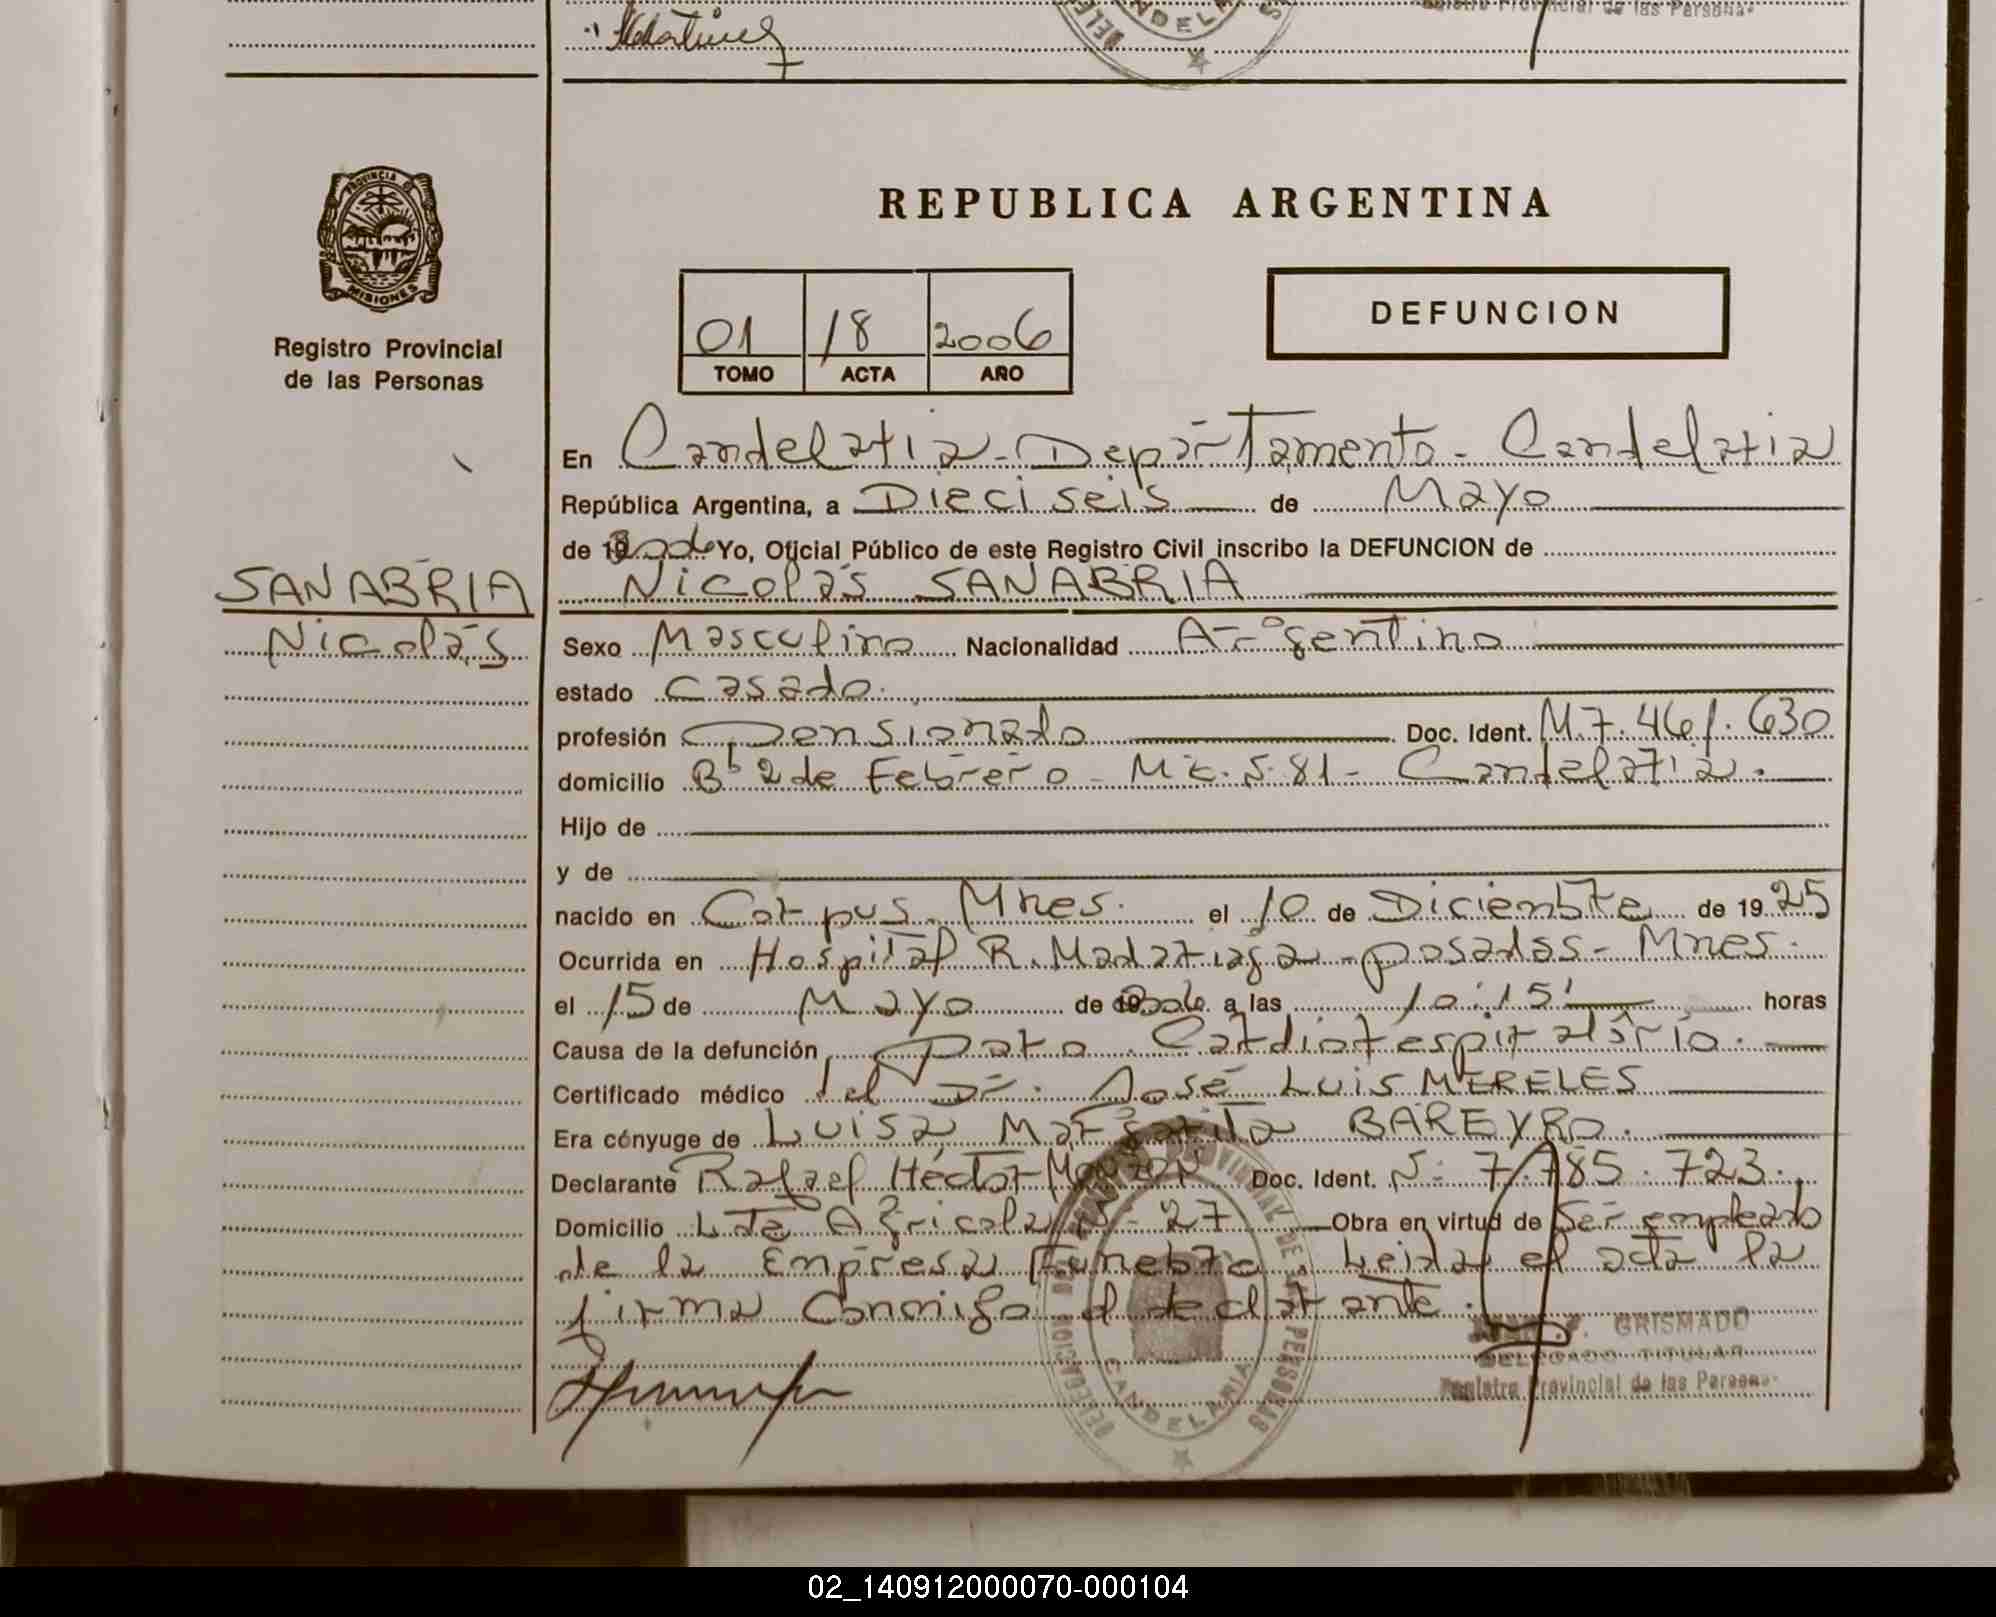 Martinez
DELE
CANDELA
Registro Provincial de las Personas
PROVINCIA DE
MISIONES
Registro Provincial
de las Personas
REPUBLICA ARGENTINA
01 18 2006
TOMO ACTA AÑO
DEFUNCION
En Candelaria - Departamento - Candelaria
República Argentina, a Dieciseis de Mayo
de 2006 Yo, Oficial Público de este Registro Civil inscribo la DEFUNCION de
Nicolás SANABRIA
SANABRIA
Nicolás
Sexo Masculino Nacionalidad Argentino
estado Casado.
profesión Pensionado Doc. Ident. M.7.461.630
domicilio Bº 2 de Febrero - Mz. S. 81 - Candelaria.
Hijo de
y de
nacido en Corpus. Mnes. el 10 de Diciembre de 1925
Ocurrida en Hospital R. Madariaga - posadas - Mnes.
el 15 de Mayo de 2006 a las 10:15' horas
Causa de la defunción paro Cardiorespiratório.
Certificado médico del Dr. José Luis MERELES
Era cónyuge de Luisa Margarita BAREYRO.
Declarante Rafael Héctor Monzon Doc. Ident. Nº 7.785.723.
Domicilio Lte Agricola Nº 27 Obra en virtud de Ser empleado
de la Empresa Funebre. Leida el acta la
firma Conmigo el declarante.
REGISTRO PROVINCIAL DE LAS PERSONAS
DELEGACION
CANDELARIA
GRISMADO
DELEGADO TITULAR
Registro Provincial de las Personas
02_140912000070-000104